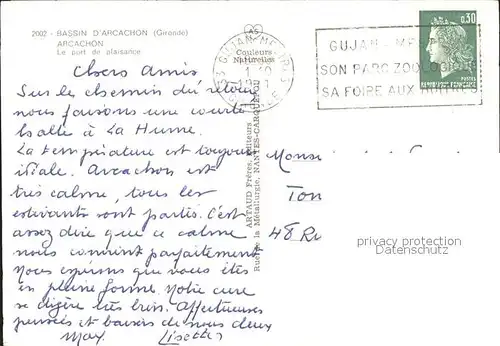 2002 - BASSIN D'ARCACHON (Gironde)
ARCACHON
Le port de plaisance
Couleurs
Naturelles
GUJAN-ME
SON PARC ZOOLOGI
SA FOIRE AUX
0,30
Chers Amis
Sur le chemin du retour
nous faisons une courte
halte à La Hume.
La température est toujours
idéale. Arcachon est
très calme, tous les
estivants sont partis. C'est
assez dire que ce calme
nous convient parfaitement
Nous espérons que vous êtes
en pleine forme. Notre cure
se digère très bien. Affectueuses
pensées et baisers de nous deux
Max. Lisette
ARTAUD Frères, Editeurs
Rue de la Métallurgie, NANTES-CARQUEFOU
Monsi
Ton
48 Ru
privacy protection
Datenschutz